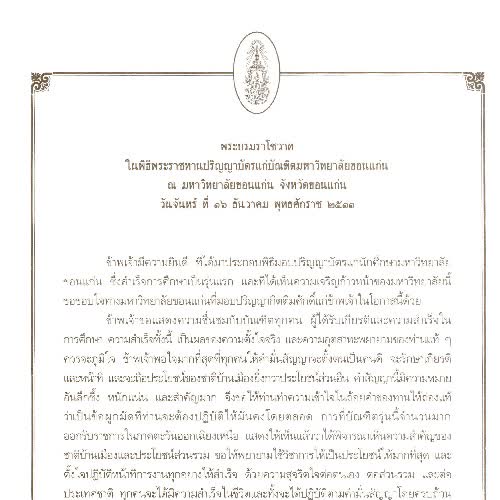 พระบรมราโชวาท
ในพิธีพระราชทานปริญญาบัตรแก่บัณฑิตมหาวิทยาลัยขอนแก่น
ณ มหาวิทยาลัยขอนแก่น จังหวัดขอนแก่น
วันจันทร์ ที่ ๑๖ ธันวาคม พุทธศักราช ๒๕๑๑
ข้าพเจ้ามีความยินดี ที่ได้มาประกอบพิธีมอบปริญญาบัตรแก่นักศึกษามหาวิทยาลัย
ขอนแก่น ซึ่งสำเร็จการศึกษาเป็นรุ่นแรก และที่ได้เห็นความเจริญก้าวหน้าของมหาวิทยาลัยนี้
ขอขอบใจทางมหาวิทยาลัยขอนแก่นที่มอบปริญญากิตติมศักดิ์แก่ข้าพเจ้าในโอกาสนี้ด้วย
ข้าพเจ้าขอแสดงความชื่นชมกับบัณฑิตทุกคน ผู้ได้รับเกียรติและความสำเร็จใน
การศึกษา ความสำเร็จทั้งนี้ เป็นผลของความตั้งใจจริง และความอุตสาหะพยายามของท่านแท้ ๆ
ควรจะภูมิใจ ข้าพเจ้าพอใจมากที่สุดที่ทุกคนให้คำมั่นสัญญาจะตั้งตนเป็นคนดี จะรักษาเกียรติ
และหน้าที่ และจะถือประโยชน์ของชาติบ้านเมืองยิ่งกว่าประโยชน์ส่วนอื่น คำสัญญานี้มีความหมาย
อันลึกซึ้ง หนักแน่น และสำคัญมาก จึงขอให้ท่านทำความเข้าใจในถ้อยคำของท่านให้ถ่องแท้
ว่าเป็นข้อผูกมัดที่ท่านจะต้องปฏิบัติให้มั่นคงโดยตลอด การที่บัณฑิตรุ่นนี้จำนวนมาก
ออกรับราชการในภาคตะวันออกเฉียงเหนือ แสดงให้เห็นแล้วว่าได้พิจารณาเห็นความสำคัญของ
ชาติบ้านเมืองและประโยชน์ส่วนรวม ขอให้พยายามใช้วิชาการให้เป็นประโยชน์ให้มากที่สุด และ
ตั้งใจปฏิบัติหน้าที่การงานทุกอย่างให้สำเร็จ ด้วยความสุจริตใจต่อตนเอง ต่อส่วนรวม และต่อ
ประเทศชาติ ทุกคนจะได้มีความสำเร็จในชีวิตและทั้งจะได้ปฏิบัติตามคำมั่นสัญญาโดยครบถ้วน